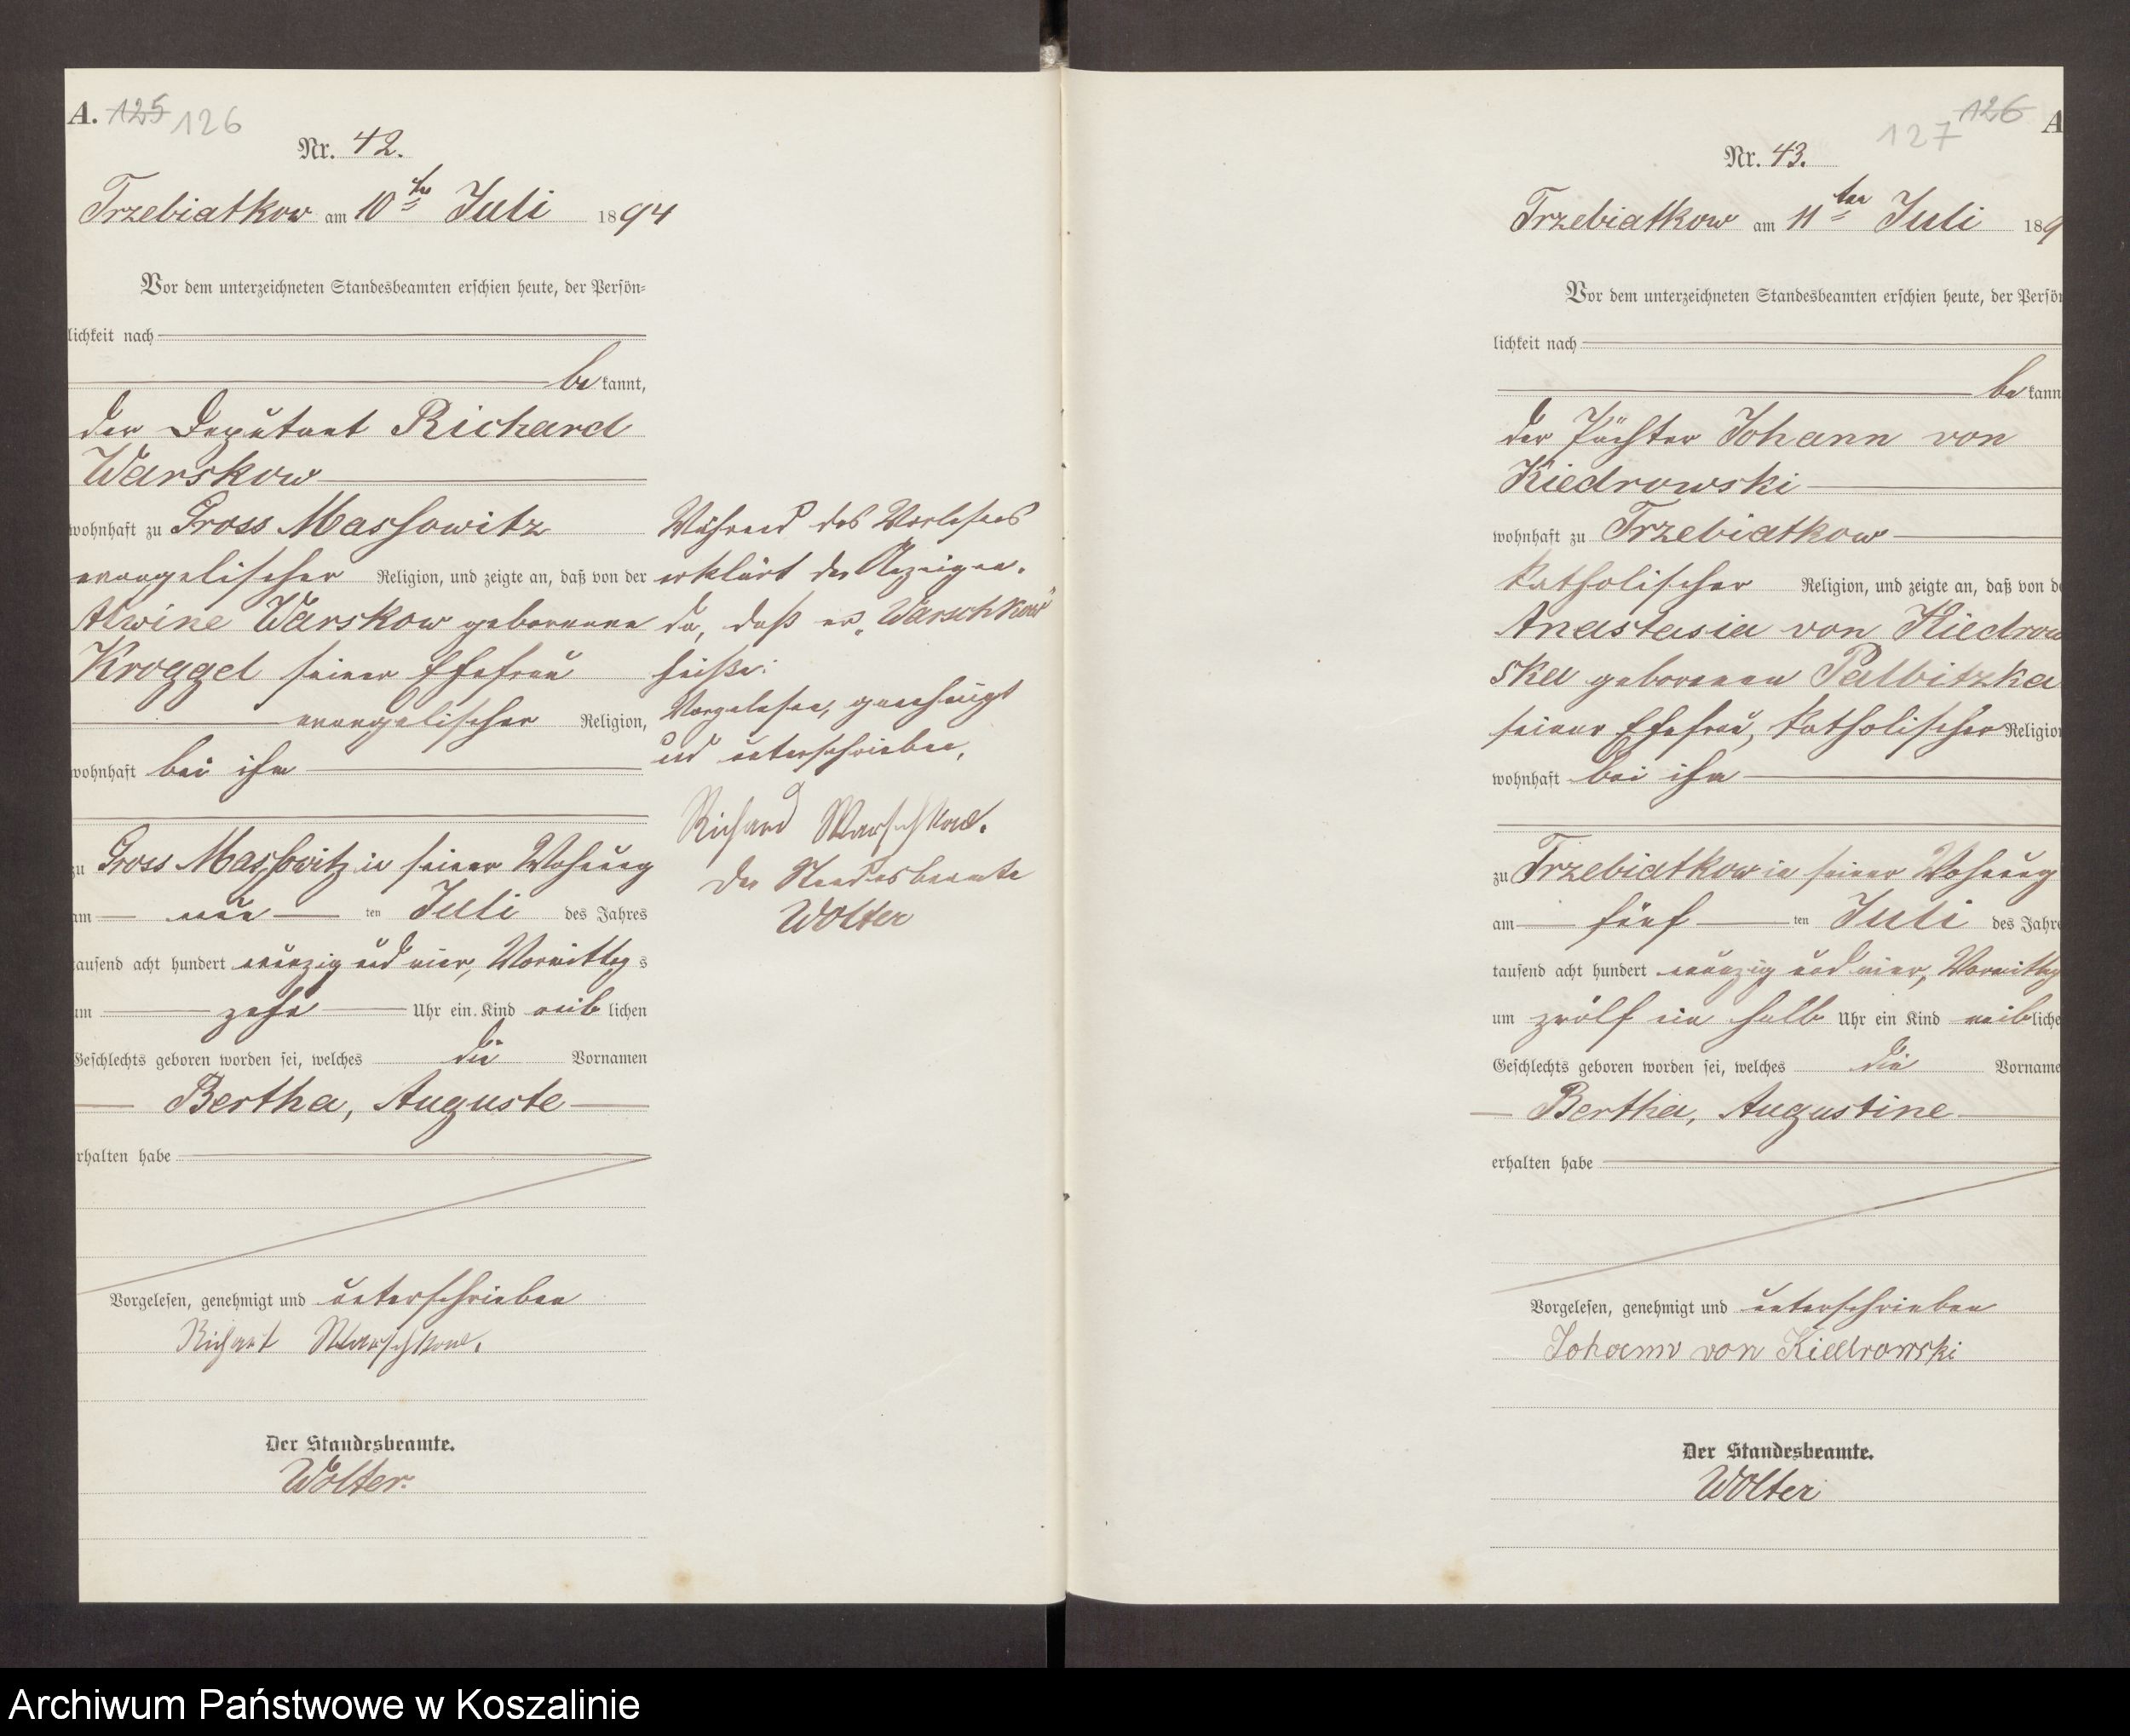 A. 125 126
Nr. 42.
Trzebiatkow am 10ten Juli 1894
Vor dem unterzeichneten Standesbeamten erschien heute, der Persön-
lichkeit nach
be kannt,
der Deputant Richard
Warskow
wohnhaft zu Gross Massowitz
evangelischer Religion, und zeigte an, daß von der
Alwine Warskow geborenen
Kroggel seiner Ehefrau
evangelischer Religion,
wohnhaft bei ihm
zu Gross Massowitz in seiner Wohnung
am neun ten Juli des Jahres
tausend acht hundert neunzig und vier, Vormittag s
um zehn Uhr ein Kind weib lichen
Geschlechts geboren worden sei, welches die Vornamen
Bertha, Auguste
erhalten habe
Vorgelesen, genehmigt und unterschrieben
Richart Warschkow.
Der Standesbeamte.
Wolter.
Während des Vorlesens
erklärt der Anzeigen-
de, daß er "Warschkow"
heiße.
Vorgelesen, genehmigt
und unterschrieben,
Richard Warschkow.
Der Standesbeamte
Wolter
127 126 A
Nr. 43.
Trzebiatkow am 11ten Juli 189
Vor dem unterzeichneten Standesbeamten erschien heute, der Persön
lichkeit nach
be kann
der Pächter Johann von
Kiedrowski
wohnhaft zu Trzebiatkow
katholischer Religion, und zeigte an, daß von de
Anastasia von Kiedrow
ska geborenen Palbitzka
seiner Ehefrau, katholischer Religion
wohnhaft bei ihm
zu Trzebiatkow in seiner Wohnung
am fünf ten Juli des Jahre
tausend acht hundert neunzig und vier, Vormittag
um zwölf ein halb Uhr ein Kind weib liche
Geschlechts geboren worden sei, welches die Vorname
Bertha, Augustine
erhalten habe
Vorgelesen, genehmigt und unterschrieben
Johann von Kiedrowski
Der Standesbeamte.
Wolter
Archiwum Państwowe w Koszalinie